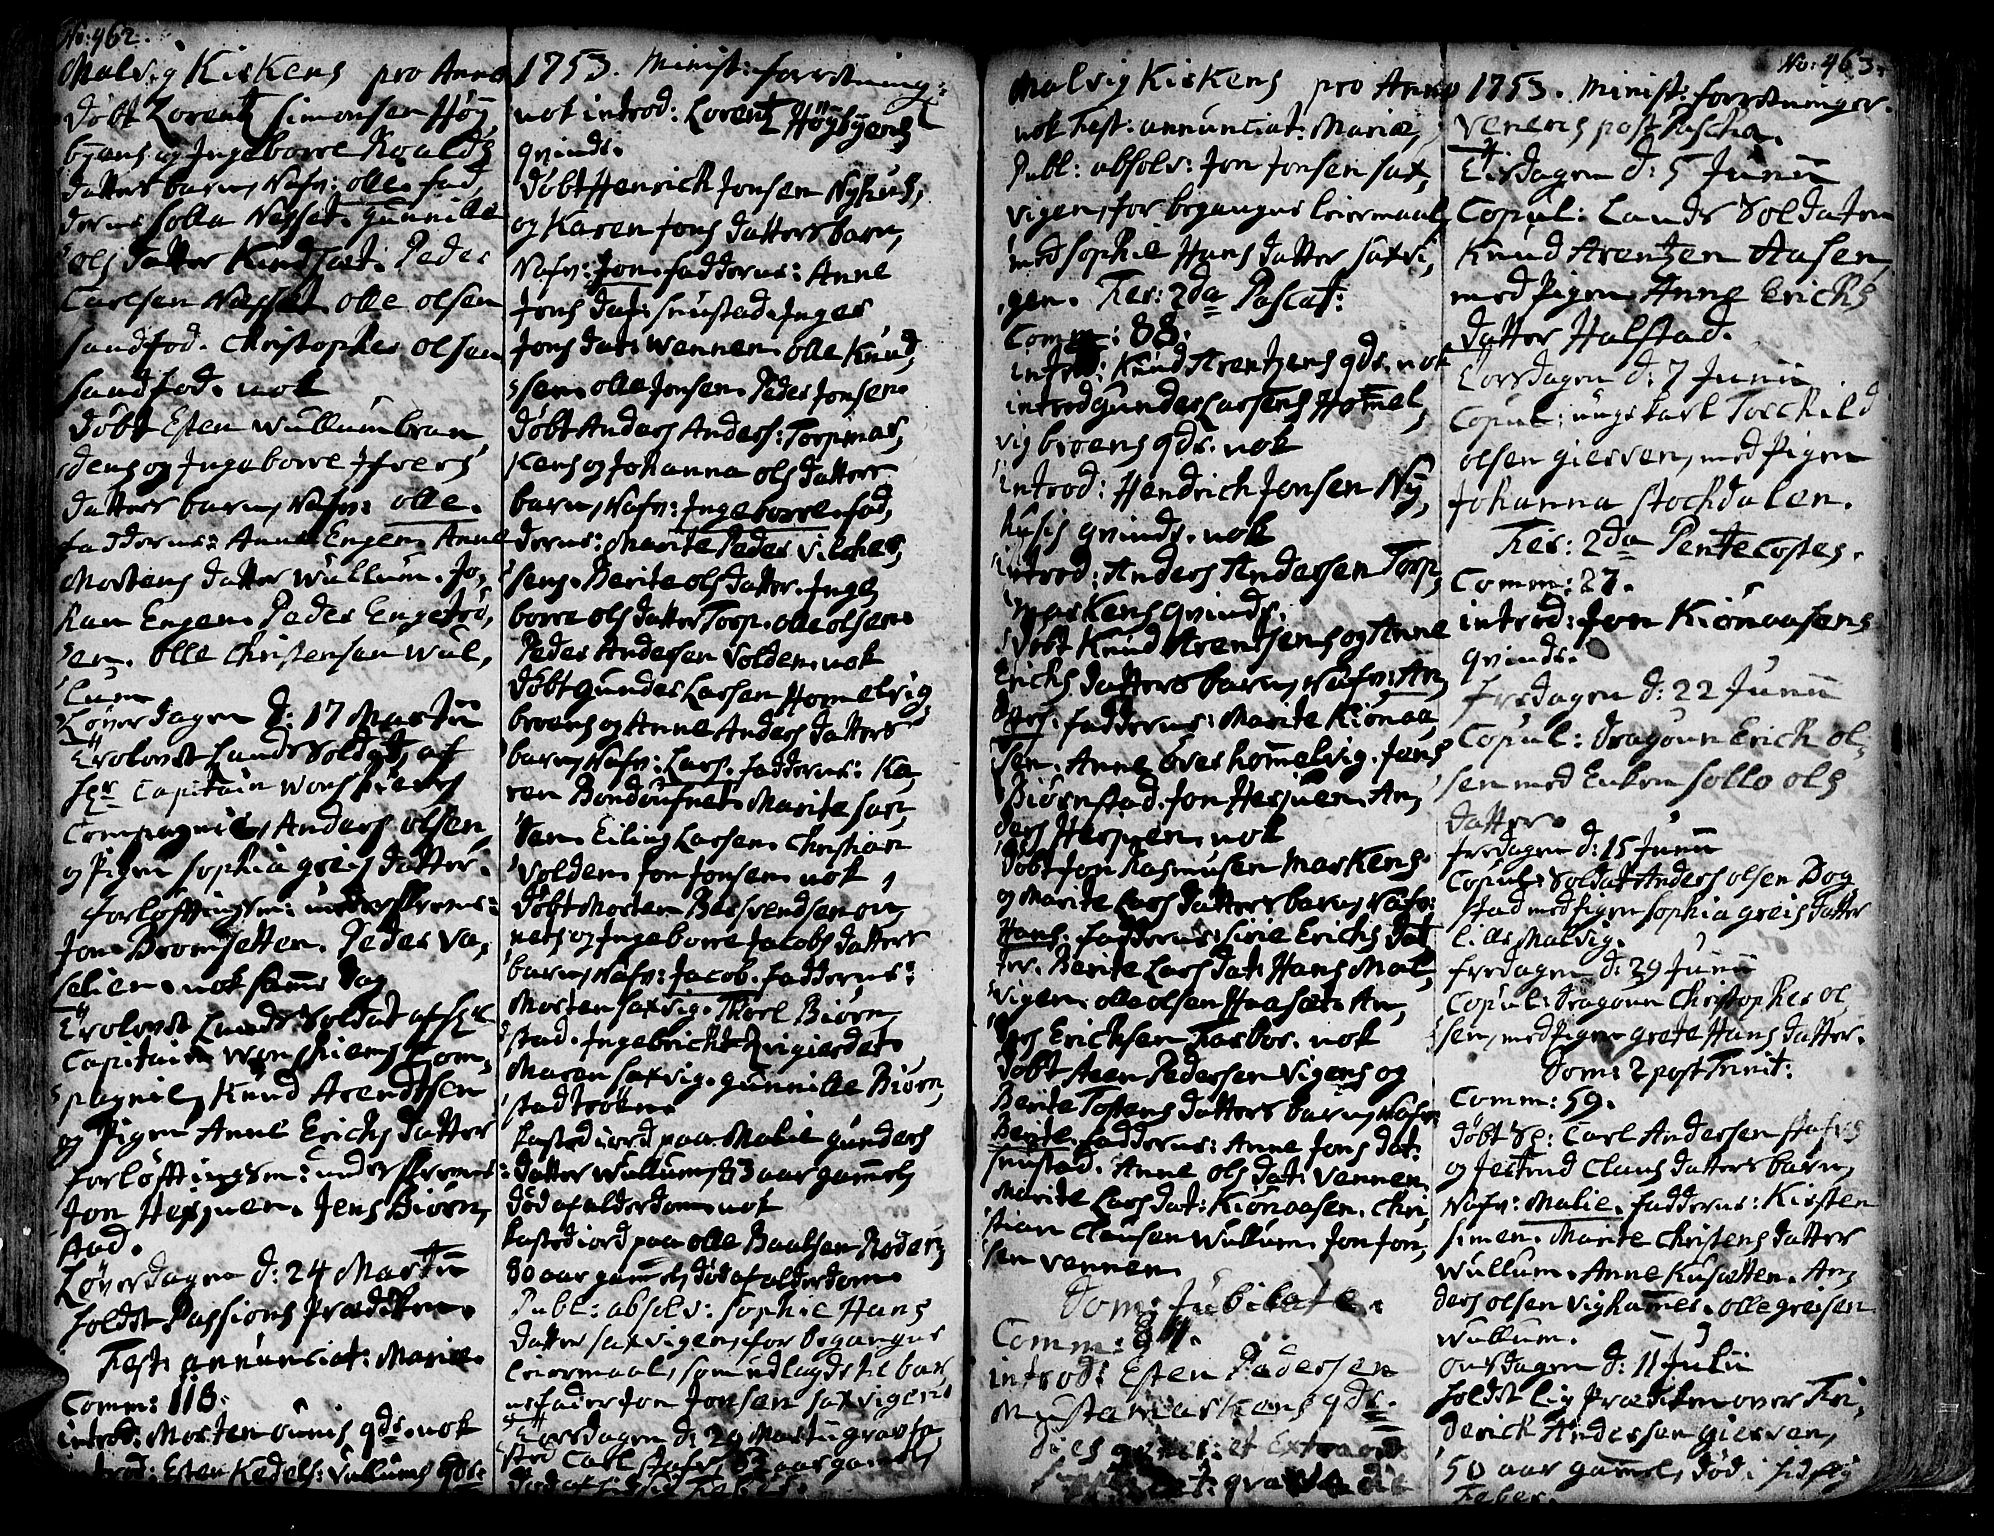 No: 462.
Malvig Kirkens pro Anno
Døbt Lorentz Simonsen Høy
byens og Ingeborre Roalds
datters barn, Nafn: Olle. fad,
derne Solla Næsset. Gunnille
Ols datter Kindset. Peder
Carlsen Næsset. Olle Olsen
Sandfød. Christopher Olsen
Sandfød. nok
Døbt Esten Wullumbran
dens og Ingeborre Ifvers
datters barn, Nafn: Olle.
fadderne: Anne Engen. Anne
Mortens datter Wullum. Jo,
han Engen. Peder Engetrø,
en. Olle Christensen Wul,
lum
Løverdagen d: 17 Martii
Trolovet Land Soldat af
Hr Capitain Wonsfierss
Compagnie, Anders Olsen,
og Pigen Sophia Greis datter.
forloftingsm: underskreve:
Jon Bromsetten. Peder Va,
selien. nok samme dag
Trolovet Land Soldat af Hr
Capitain Wonsfiers Com,
pagnie, Knud Arendtsen
og Pigen Anne Erichs datter
forløftingsm: underskreve:
Jon Hespuen. Jens Biørn,
stad.
Løverdagen d: 24 Martii
holdt Passions Prædiken.
Fest: annunciat: Mariæ.
Comm: 118.
introd: Morten Ounis qds. nok
introd: Esten Kedels: Vullums qds:
1753. Minist: forretning:
nok introd: Lorentz Høybyens
qvinde.
Døbt Henrich Jonsen Nyhus,
og Karen Jons datters barn,
Nafn: Jon. fadderne: Anne
Jons dat: Smustad. Inger
Jons dat: Wennen. Olle Knud,
sen. Olle Jonsen. Peder Jonsen.
Døbt Anders Anders: Torpmar,
kens og Johanna Ols datters
barn, Nafn: Ingeborre. fad,
derne: Marite Peder Vilches,
sens. Berite Ols datter. Inge,
borre Ols datter Torp. Olle Olsen.
Peder Andersen Volden. nok
Døbt Gunder Larsen Homelvig
broens og Anne Anders datters
barn, Nafn: Lars. fadderne: Ka,
ren Bondøufnet. Marite Sar,
sen. Eiling Larsen. Christian
Volden. Jon Jonsen. nok,
Døbt Morten Barsvendsen Ou,
nets og Ingeborre Jacobs datters
barn, Nafn: Jacob. fadderne:
Morten Saxvig. Thorl Biørn,
stad. Ingebricht Rigierdet.
Maren Saxvig. Gunnille Biørn,
stadtrøen.
kasted iord paa Malie Gunders
datter Wullum, 83 aar gammel,
død af alderdom. nok
kasted iord paa Olle Baalsen Røder,
80 aar gammel, død af alderdom.
Publ: absolv: Sophie Hans
datter Saxvigen, for begangne
leiermaal, som udlagde til bar
nefader Jon Jonsen Saxvigen
Torsdagen d: 29 Martii gravfæ,
sted Carl Stafn, 83 aar gamel,
No: 463.
Malvig Kirkens pro Anno
nok Fest: annunciat: Mariæ,
Publ: absolv: Jon Jonsen Sax,
vigen, for begangne leiermaal,
med Sophie Hans datter Saxvi,
gen. Fer: 2da Pascat:
Comm: 88.
introd: Knud Arentzens qds. nok
introd Gunder Larsens Homel,
vig broens qds. nok
introd: Hendrich Jonsen Ny,
huses qvinde. nok
introd: Anders Andersen Torp,
markens qvinde.
Døbt Knud Arentsens og Anne
Erichs datters barn, Nafn: An,
ders. fadderne: Marite Kiønaa,
sen. Anne Overhommelvig. Jens
Biørnstad. Jon Hespuen. An,
ders Hespuen. nok
Døbt Jon Rasmusen Markens
og Marite Lars datters barn, Nafn:
Hans. fadderne: Sirie Erichs dat
ter. Berite Lars dat: Hans Mal,
vigen. Olle Olsen Haaset. An,
ders Erichsen Forbor. nok
Døbt Aren Pedersen Vigens og
Berite Tostens datters barn, Nafn:
Berite. fadderne: Anne Jons dat:
Smustad. Anne Ols dat: Vennen.
Marite Lars dat: Kiønaasen. Chri,
stian Clausen Wullum. Jon Jon,
sen Vennen.
Dom: Jubilate.
Comm:
introd: Esten Pedersen
Mustamarkens qds.
Dies et Extraord:
1753. Minist: forretninger.
Veneris post Pascha.
Tirsdagen d: 5 Junii
Copul: Land Soldaten
Knud Arentzen Aasen,
med Pigen Anne Erichs
datter Halstad.
Torsdagen d: 7 Junii
Copul: ungekarl Torchild
Olsen Gierven, med Pigen
Johanna Stochdalen.
Fer: 2da Pentecostes.
Comm: 27.
introd: Jon Kiønaasens
qvinde.
fredagen d: 22 Junii
Copul: Dragoun Erich Ol,
sen med Enken Sollo Ols
datter.
fredagen d: 15 Junii
Copul: Soldat Anders Olsen Bog
stad med Pigen Sophia Greis datter
Lille Malvig.
fredagen d: 29 Junii
Copul: Dragoun Christopher Ol
sen, med Pigen Grete Hans datter.
Dom: 2 post Trinit:
Comm: 59.
Døbt Sl: Carl Andersen Stafns
og Jertrud Claus datters barn,
Nafn: Malie. fadderne: Kirsten
Simen. Marite Christens datter
Wullum. Anne Kusætten. An,
ders Olsen Vighamer. Olle Greisen
Wullum.
Onsdagen d: 11 Julii
holdt Lig Prædiken over Fri,
derich Andersen Gierven,
50 aar gammel, død i hidsig
Feber.